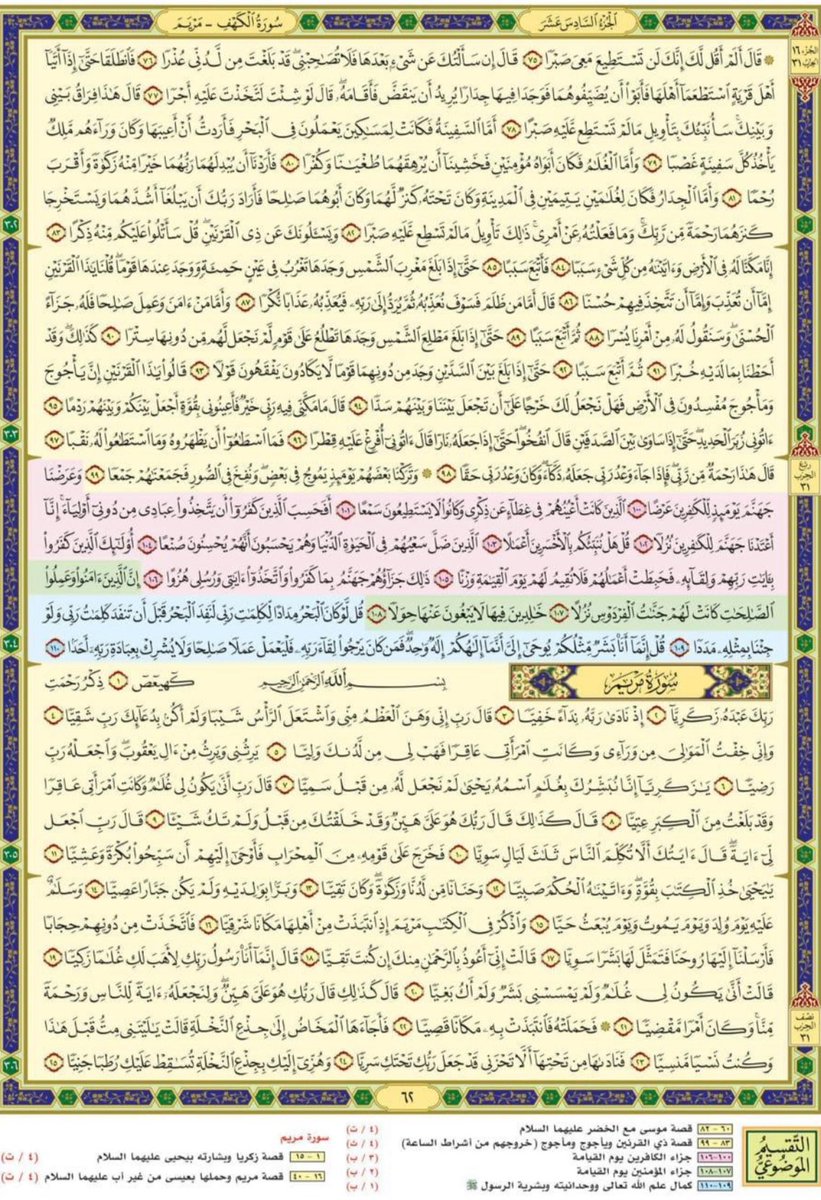 الجُزْءُ السَّادِسَ عَشَرَ
سُورَةُ الْكَهْفِ - مَرْيَمَ
الجزء ١٦
الحزب ٣١
۞ قَالَ أَلَمْ أَقُل لَّكَ إِنَّكَ لَن تَسْتَطِيعَ مَعِىَ صَبْرًا ٧٥ قَالَ إِن سَأَلْتُكَ عَن شَىْءٍۭ بَعْدَهَا فَلَا تُصَٰحِبْنِى ۖ قَدْ بَلَغْتَ مِن لَّدُنِّى عُذْرًا ٧٦ فَٱنطَلَقَا حَتَّىٰٓ إِذَآ أَتَيَآ
أَهْلَ قَرْيَةٍ ٱسْتَطْعَمَآ أَهْلَهَا فَأَبَوْا۟ أَن يُضَيِّفُوهُمَا فَوَجَدَا فِيهَا جِدَارًا يُرِيدُ أَن يَنقَضَّ فَأَقَامَهُۥ ۖ قَالَ لَوْ شِئْتَ لَتَّخَذْتَ عَلَيْهِ أَجْرًا ٧٧ قَالَ هَٰذَا فِرَاقُ بَيْنِى
وَبَيْنِكَ ۚ سَأُنَبِّئُكَ بِتَأْوِيلِ مَا لَمْ تَسْتَطِع عَّلَيْهِ صَبْرًا ٧٨ أَمَّا ٱلسَّفِينَةُ فَكَانَتْ لِمَسَٰكِينَ يَعْمَلُونَ فِى ٱلْبَحْرِ فَأَرَدتُّ أَنْ أَعِيبَهَا وَكَانَ وَرَآءَهُم مَّلِكٌ
يَأْخُذُ كُلَّ سَفِينَةٍ غَصْبًا ٧٩ وَأَمَّا ٱلْغُلَٰمُ فَكَانَ أَبَوَاهُ مُؤْمِنَيْنِ فَخَشِينَآ أَن يُرْهِقَهُمَا طُغْيَٰنًا وَكُفْرًا ٨٠ فَأَرَدْنَآ أَن يُبْدِلَهُمَا رَبُّهُمَا خَيْرًا مِّنْهُ زَكَوٰةً وَأَقْرَبَ
رُحْمًا ٨١ وَأَمَّا ٱلْجِدَارُ فَكَانَ لِغُلَٰمَيْنِ يَتِيمَيْنِ فِى ٱلْمَدِينَةِ وَكَانَ تَحْتَهُۥ كَنزٌ لَّهُمَا وَكَانَ أَبُوهُمَا صَٰلِحًا فَأَرَادَ رَبُّكَ أَن يَبْلُغَآ أَشُدَّهُمَا وَيَسْتَخْرِجَا
كَنزَهُمَا رَحْمَةً مِّن رَّبِّكَ ۚ وَمَا فَعَلْتُهُۥ عَنْ أَمْرِى ۚ ذَٰلِكَ تَأْوِيلُ مَا لَمْ تَسْطِع عَّلَيْهِ صَبْرًا ٨٢ وَيَسْـَٔلُونَكَ عَن ذِى ٱلْقَرْنَيْنِ ۖ قُلْ سَأَتْلُوا۟ عَلَيْكُم مِّنْهُ ذِكْرًا ٨٣
٣٠٢
إِنَّا مَكَّنَّا لَهُۥ فِى ٱلْأَرْضِ وَءَاتَيْنَٰهُ مِن كُلِّ شَىْءٍ سَبَبًا ٨٤ فَأَتْبَعَ سَبَبًا ٨٥ حَتَّىٰٓ إِذَا بَلَغَ مَغْرِبَ ٱلشَّمْسِ وَجَدَهَا تَغْرُبُ فِى عَيْنٍ حَمِئَةٍ وَوَجَدَ عِندَهَا قَوْمًا ۗ قُلْنَا يَٰذَا ٱلْقَرْنَيْنِ
إِمَّآ أَن تُعَذِّبَ وَإِمَّآ أَن تَتَّخِذَ فِيهِمْ حُسْنًا ٨٦ قَالَ أَمَّا مَن ظَلَمَ فَسَوْفَ نُعَذِّبُهُۥ ثُمَّ يُرَدُّ إِلَىٰ رَبِّهِۦ فَيُعَذِّبُهُۥ عَذَابًا نُّكْرًا ٨٧ وَأَمَّا مَنْ ءَامَنَ وَعَمِلَ صَٰلِحًا فَلَهُۥ جَزَآءً
ٱلْحُسْنَىٰ ۖ وَسَنَقُولُ لَهُۥ مِنْ أَمْرِنَا يُسْرًا ٨٨ ثُمَّ أَتْبَعَ سَبَبًا ٨٩ حَتَّىٰٓ إِذَا بَلَغَ مَطْلِعَ ٱلشَّمْسِ وَجَدَهَا تَطْلُعُ عَلَىٰ قَوْمٍ لَّمْ نَجْعَل لَّهُم مِّن دُونِهَا سِتْرًا ٩٠ كَذَٰلِكَ وَقَدْ
أَحَطْنَا بِمَا لَدَيْهِ خُبْرًا ٩١ ثُمَّ أَتْبَعَ سَبَبًا ٩٢ حَتَّىٰٓ إِذَا بَلَغَ بَيْنَ ٱلسَّدَّيْنِ وَجَدَ مِن دُونِهِمَا قَوْمًا لَّا يَكَادُونَ يَفْقَهُونَ قَوْلًا ٩٣ قَالُوا۟ يَٰذَا ٱلْقَرْنَيْنِ إِنَّ يَأْجُوجَ
وَمَأْجُوجَ مُفْسِدُونَ فِى ٱلْأَرْضِ فَهَلْ نَجْعَلُ لَكَ خَرْجًا عَلَىٰٓ أَن تَجْعَلَ بَيْنَنَا وَبَيْنَهُمْ سَدًّا ٩٤ قَالَ مَا مَكَّنِّى فِيهِ رَبِّى خَيْرٌ فَأَعِينُونِى بِقُوَّةٍ أَجْعَلْ بَيْنَكُمْ وَبَيْنَهُمْ رَدْمًا ٩٥
٣٠٣
ءَاتُونِى زُبَرَ ٱلْحَدِيدِ ۖ حَتَّىٰٓ إِذَا سَاوَىٰ بَيْنَ ٱلصَّدَفَيْنِ قَالَ ٱنفُخُوا۟ ۖ حَتَّىٰٓ إِذَا جَعَلَهُۥ نَارًا قَالَ ءَاتُونِىٓ أُفْرِغْ عَلَيْهِ قِطْرًا ٩٦ فَمَا ٱسْطَٰعُوٓا۟ أَن يَظْهَرُوهُ وَمَا ٱسْتَطَٰعُوا۟ لَهُۥ نَقْبًا ٩٧
ربع الحزب ٣١
قَالَ هَٰذَا رَحْمَةٌ مِّن رَّبِّى ۖ فَإِذَا جَآءَ وَعْدُ رَبِّى جَعَلَهُۥ دَكَّآءَ ۖ وَكَانَ وَعْدُ رَبِّى حَقًّا ٩٨ ۞ وَتَرَكْنَا بَعْضَهُمْ يَوْمَئِذٍ يَمُوجُ فِى بَعْضٍ ۖ وَنُفِخَ فِى ٱلصُّورِ فَجَمَعْنَٰهُمْ جَمْعًا ٩٩ وَعَرَضْنَا
جَهَنَّمَ يَوْمَئِذٍ لِّلْكَٰفِرِينَ عَرْضًا ١٠٠ ٱلَّذِينَ كَانَتْ أَعْيُنُهُمْ فِى غِطَآءٍ عَن ذِكْرِى وَكَانُوا۟ لَا يَسْتَطِيعُونَ سَمْعًا ١٠١ أَفَحَسِبَ ٱلَّذِينَ كَفَرُوٓا۟ أَن يَتَّخِذُوا۟ عِبَادِى مِن دُونِىٓ أَوْلِيَآءَ ۚ إِنَّآ
أَعْتَدْنَا جَهَنَّمَ لِلْكَٰفِرِينَ نُزُلًا ١٠٢ قُلْ هَلْ نُنَبِّئُكُم بِٱلْأَخْسَرِينَ أَعْمَٰلًا ١٠٣ ٱلَّذِينَ ضَلَّ سَعْيُهُمْ فِى ٱلْحَيَوٰةِ ٱلدُّنْيَا وَهُمْ يَحْسَبُونَ أَنَّهُمْ يُحْسِنُونَ صُنْعًا ١٠٤ أُو۟لَٰٓئِكَ ٱلَّذِينَ كَفَرُوا۟
بِـَٔايَٰتِ رَبِّهِمْ وَلِقَآئِهِۦ فَحَبِطَتْ أَعْمَٰلُهُمْ فَلَا نُقِيمُ لَهُمْ يَوْمَ ٱلْقِيَٰمَةِ وَزْنًا ١٠٥ ذَٰلِكَ جَزَآؤُهُمْ جَهَنَّمُ بِمَا كَفَرُوا۟ وَٱتَّخَذُوٓا۟ ءَايَٰتِى وَرُسُلِى هُزُوًا ١٠٦ إِنَّ ٱلَّذِينَ ءَامَنُوا۟ وَعَمِلُوا۟
ٱلصَّٰلِحَٰتِ كَانَتْ لَهُمْ جَنَّٰتُ ٱلْفِرْدَوْسِ نُزُلًا ١٠٧ خَٰلِدِينَ فِيهَا لَا يَبْغُونَ عَنْهَا حِوَلًا ١٠٨ قُل لَّوْ كَانَ ٱلْبَحْرُ مِدَادًا لِّكَلِمَٰتِ رَبِّى لَنَفِدَ ٱلْبَحْرُ قَبْلَ أَن تَنفَدَ كَلِمَٰتُ رَبِّى وَلَوْ
٣٠٤
جِئْنَا بِمِثْلِهِۦ مَدَدًا ١٠٩ قُلْ إِنَّمَآ أَنَا۠ بَشَرٌ مِّثْلُكُمْ يُوحَىٰٓ إِلَىَّ أَنَّمَآ إِلَٰهُكُمْ إِلَٰهٌ وَٰحِدٌ ۖ فَمَن كَانَ يَرْجُوا۟ لِقَآءَ رَبِّهِۦ فَلْيَعْمَلْ عَمَلًا صَٰلِحًا وَلَا يُشْرِكْ بِعِبَادَةِ رَبِّهِۦٓ أَحَدًۢا ١١٠
سُورَةُ مَرْيَمَ
بِسْمِ ٱللَّهِ ٱلرَّحْمَٰنِ ٱلرَّحِيمِ كٓهيعٓصٓ ١ ذِكْرُ رَحْمَتِ
رَبِّكَ عَبْدَهُۥ زَكَرِيَّآ ٢ إِذْ نَادَىٰ رَبَّهُۥ نِدَآءً خَفِيًّا ٣ قَالَ رَبِّ إِنِّى وَهَنَ ٱلْعَظْمُ مِنِّى وَٱشْتَعَلَ ٱلرَّأْسُ شَيْبًا وَلَمْ أَكُنۢ بِدُعَآئِكَ رَبِّ شَقِيًّا ٤
وَإِنِّى خِفْتُ ٱلْمَوَٰلِىَ مِن وَرَآءِى وَكَانَتِ ٱمْرَأَتِى عَاقِرًا فَهَبْ لِى مِن لَّدُنكَ وَلِيًّا ٥ يَرِثُنِى وَيَرِثُ مِنْ ءَالِ يَعْقُوبَ ۖ وَٱجْعَلْهُ رَبِّ
رَضِيًّا ٦ يَٰزَكَرِيَّآ إِنَّا نُبَشِّرُكَ بِغُلَٰمٍ ٱسْمُهُۥ يَحْيَىٰ لَمْ نَجْعَل لَّهُۥ مِن قَبْلُ سَمِيًّا ٧ قَالَ رَبِّ أَنَّىٰ يَكُونُ لِى غُلَٰمٌ وَكَانَتِ ٱمْرَأَتِى عَاقِرًا
وَقَدْ بَلَغْتُ مِنَ ٱلْكِبَرِ عِتِيًّا ٨ قَالَ كَذَٰلِكَ قَالَ رَبُّكَ هُوَ عَلَىَّ هَيِّنٌ وَقَدْ خَلَقْتُكَ مِن قَبْلُ وَلَمْ تَكُ شَيْـًٔا ٩ قَالَ رَبِّ ٱجْعَل
٣٠٥
لِّىٓ ءَايَةً ۚ قَالَ ءَايَتُكَ أَلَّا تُكَلِّمَ ٱلنَّاسَ ثَلَٰثَ لَيَالٍ سَوِيًّا ١٠ فَخَرَجَ عَلَىٰ قَوْمِهِۦ مِنَ ٱلْمِحْرَابِ فَأَوْحَىٰٓ إِلَيْهِمْ أَن سَبِّحُوا۟ بُكْرَةً وَعَشِيًّا ١١
يَٰيَحْيَىٰ خُذِ ٱلْكِتَٰبَ بِقُوَّةٍ ۖ وَءَاتَيْنَٰهُ ٱلْحُكْمَ صَبِيًّا ١٢ وَحَنَانًا مِّن لَّدُنَّا وَزَكَوٰةً ۖ وَكَانَ تَقِيًّا ١٣ وَبَرًّۢا بِوَٰلِدَيْهِ وَلَمْ يَكُن جَبَّارًا عَصِيًّا ١٤ وَسَلَٰمٌ
عَلَيْهِ يَوْمَ وُلِدَ وَيَوْمَ يَمُوتُ وَيَوْمَ يُبْعَثُ حَيًّا ١٥ وَٱذْكُرْ فِى ٱلْكِتَٰبِ مَرْيَمَ إِذِ ٱنتَبَذَتْ مِنْ أَهْلِهَا مَكَانًا شَرْقِيًّا ١٦ فَٱتَّخَذَتْ مِن دُونِهِمْ حِجَابًا
فَأَرْسَلْنَآ إِلَيْهَا رُوحَنَا فَتَمَثَّلَ لَهَا بَشَرًا سَوِيًّا ١٧ قَالَتْ إِنِّىٓ أَعُوذُ بِٱلرَّحْمَٰنِ مِنكَ إِن كُنتَ تَقِيًّا ١٨ قَالَ إِنَّمَآ أَنَا۠ رَسُولُ رَبِّكِ لِأَهَبَ لَكِ غُلَٰمًا زَكِيًّا ١٩
قَالَتْ أَنَّىٰ يَكُونُ لِى غُلَٰمٌ وَلَمْ يَمْسَسْنِى بَشَرٌ وَلَمْ أَكُ بَغِيًّا ٢٠ قَالَ كَذَٰلِكِ قَالَ رَبُّكِ هُوَ عَلَىَّ هَيِّنٌ ۖ وَلِنَجْعَلَهُۥٓ ءَايَةً لِّلنَّاسِ وَرَحْمَةً
نصف الحزب ٣١
مِّنَّا ۚ وَكَانَ أَمْرًا مَّقْضِيًّا ٢١ ۞ فَحَمَلَتْهُ فَٱنتَبَذَتْ بِهِۦ مَكَانًا قَصِيًّا ٢٢ فَأَجَآءَهَا ٱلْمَخَاضُ إِلَىٰ جِذْعِ ٱلنَّخْلَةِ قَالَتْ يَٰلَيْتَنِى مِتُّ قَبْلَ هَٰذَا
٣٠٦
وَكُنتُ نَسْيًا مَّنسِيًّا ٢٣ فَنَادَىٰهَا مِن تَحْتِهَآ أَلَّا تَحْزَنِى قَدْ جَعَلَ رَبُّكِ تَحْتَكِ سَرِيًّا ٢٤ وَهُزِّىٓ إِلَيْكِ بِجِذْعِ ٱلنَّخْلَةِ تُسَٰقِطْ عَلَيْكِ رُطَبًا جَنِيًّا ٢٥
٦٢
التقسيم الموضوعي
٦٠ - ٨٢ قصة موسى مع الخضر عليهما السلام (٤ / ت)
٨٣ - ٩٩ قصة ذي القرنين ويأجوج ومأجوج (خروجهم من أشراط الساعة) (٤ / ت)
١٠٠-١٠٦ جزاء الكافرين يوم القيامة (٣ / ب)
١٠٧-١٠٨ جزاء المؤمنين يوم القيامة (٢ / ب)
١٠٩-١١٠ كمال علم الله تعالى ووحدانيته وبشرية الرسول ﷺ (١ / ب)
سورة مريم
١ - ١٥ قصة زكريا وبشارته بيحيى عليهما السلام (٤ / ت)
١٦ - ٤٠ قصة مريم وحملها بعيسى من غير أب عليهما السلام (٤ / ت)